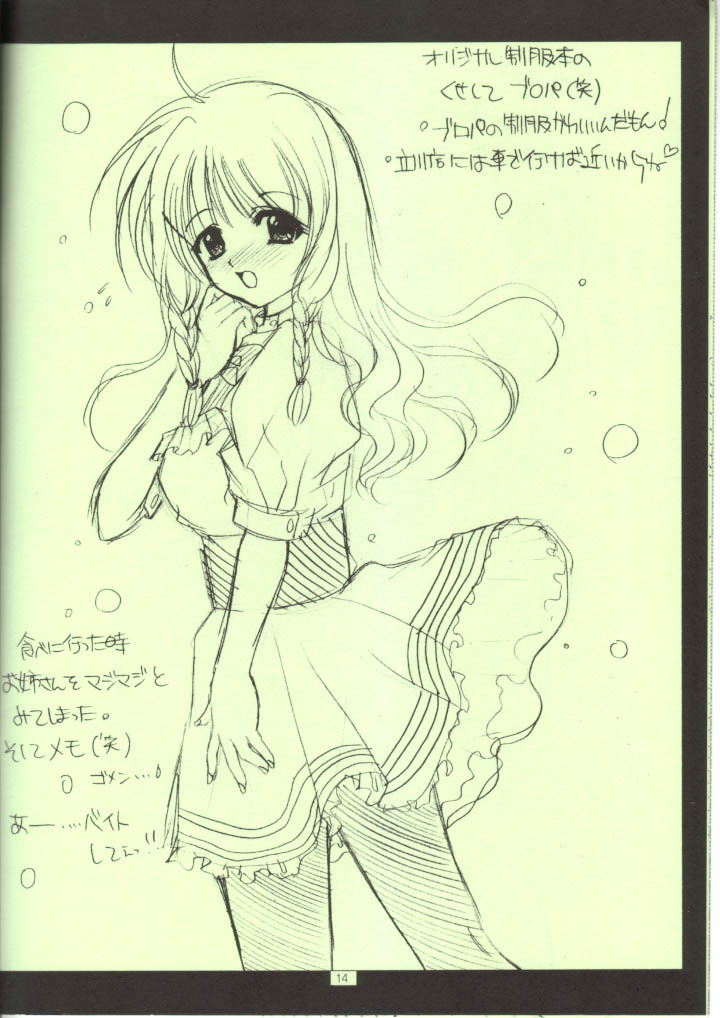 オリジナル制服本の
くせして ブロパ(笑)
・ブロパの制服かわいいんだもん♪
・立川店には車で行けば近いからね♡
食べに行った時
お姉さんをマジマジと
みてしまった。
そしてメモ(笑)
ゴメン…♪
あー……バイト
してぇっ!!
14